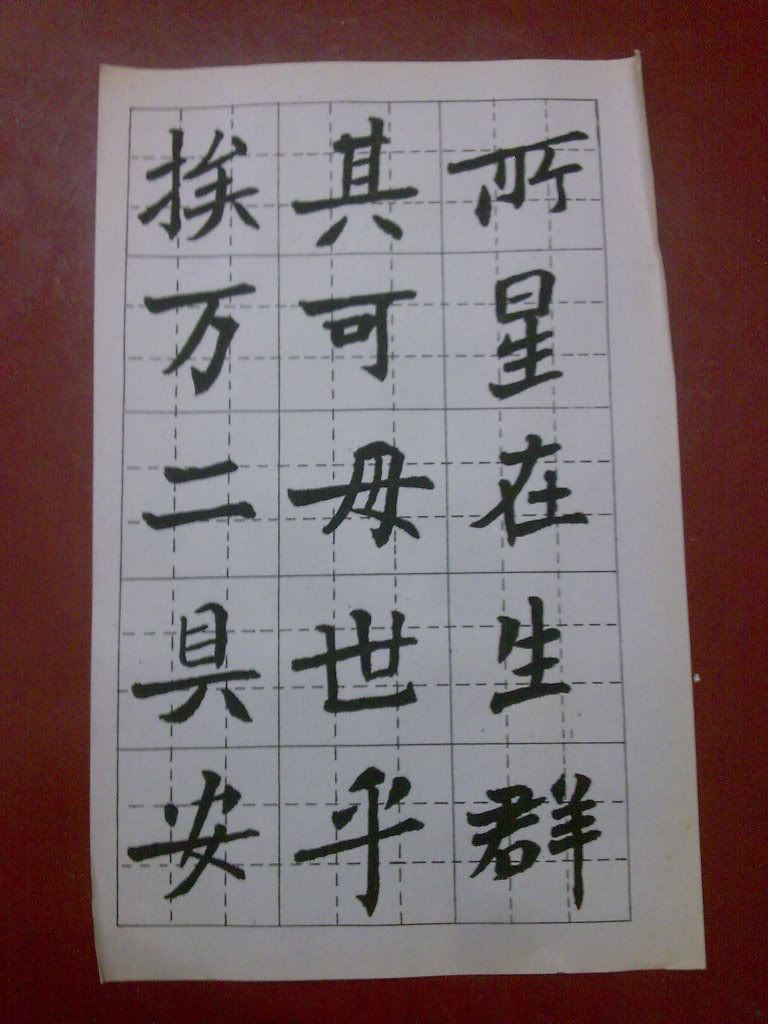 所星在生群
其可毋世乎
挨万二具安